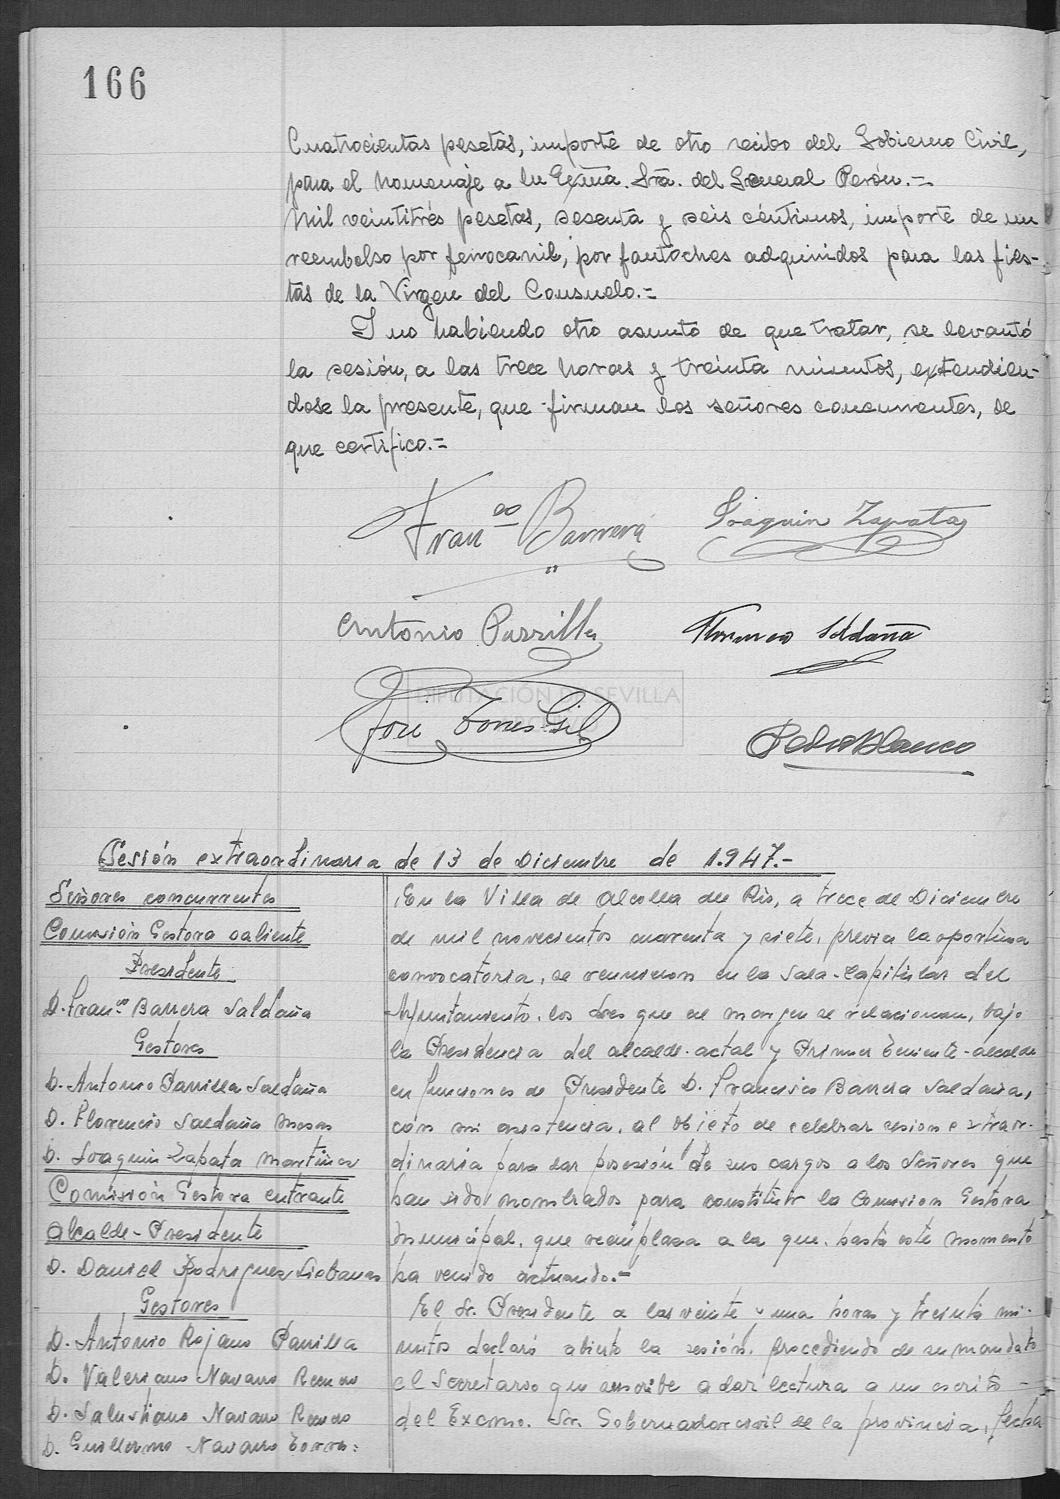 166
Cuatrocientas pesetas, importe de otro recibo del Gobierno Civil,
para el homenaje a la Exma. Sra. del General Perón.=
Mil veintitrés pesetas, sesenta y seis céntimos, importe de un
reembolso por ferrocarril, por fantoches adquiridos para las fies-
tas de la Virgen del Consuelo.=
Y no habiendo otro asunto de que tratar, se levantó
la sesión, a las trece horas y treinta minutos, extendien-
dose la presente, que firman los señores concurrentes, de
que certifico.=
Fran.co Barrera
Joaquin Zapata
Antonio Parrilla
Florencio Saldaña
DIPUTACIÓN DE SEVILLA
José Torres Gil
Pedro Blanco
Sesión extraordinaria de 13 de Diciembre de 1.947.-
Señores concurrentes
Comisión Gestora saliente
Presidente
D. Fran.co Barrera Saldaña
Gestores
D. Antonio Parrilla Saldaña
D. Florencio Saldaña Mesas
D. Joaquin Zapata Martinez
Comisión Gestora entrante
Alcalde-Presidente
D. Daniel Rodriguez
Gestores
D. Antonio Rojano Parrilla
D. Valeriano Navarro Recuero
D. Salustiano Navarro Recuero
D. Guillermo Navarro Torres
En la Villa de Alcolea del Rio, a trece de Diciembre
de mil novecientos cuarenta y siete, previa la oportuna
convocatoria, se reunieron en la Sala-Capitular del
Ayuntamiento, los Sres que al margen se relacionan, bajo
la Presidencia del alcalde-actal y Primer Teniente-alcalde
en funciones de Presidente D. Francisco Barrera Saldaña,
con mi asistencia, al objeto de celebrar sesion extraor-
dinaria para dar posesión de sus cargos a los Señores que
han sido nombrados para constituir la Comision Gestora
Municipal, que reemplaza a la que hasta este momento
ha venido actuando.=
El Sr. Presidente a las veinte y una horas y treinta mi-
nutos declaró abierta la sesión, procediendo de su mandato
el Secretario que suscribe a dar lectura a un escrito
del Excmo. Sr. Gobernador civil de la provincia, fecha